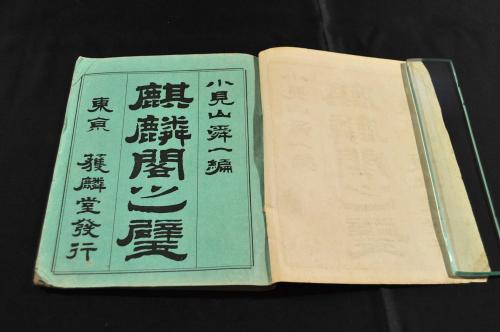 小見山舜一編
麒麟閣之璧
東京　獲麟堂發行